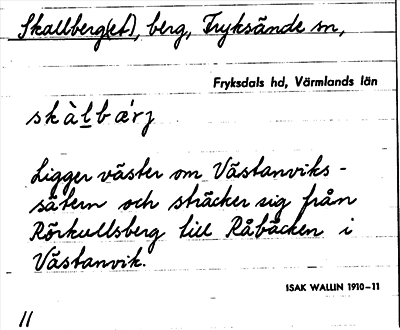 Skallberg(et), berg, Fryksände sn,
Fryksdals hd, Värmlands län
skàl̲bǽrj
Ligger väster om Västanviks-
sätern och sträcker sig från
Rörkullsberg till Råbäcken i
Västanvik.
ISAK WALLIN 1910–11
11